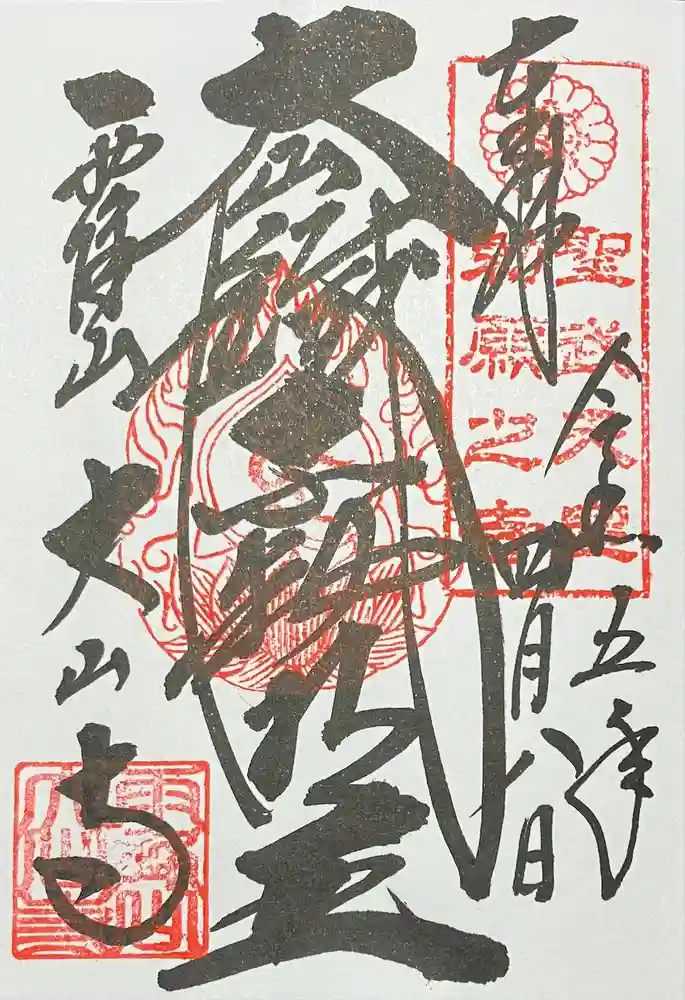 奉拝
聖武天皇
勅願之寺
令和五年
四月八日
大山鐵不動明王
雨降山
大山寺